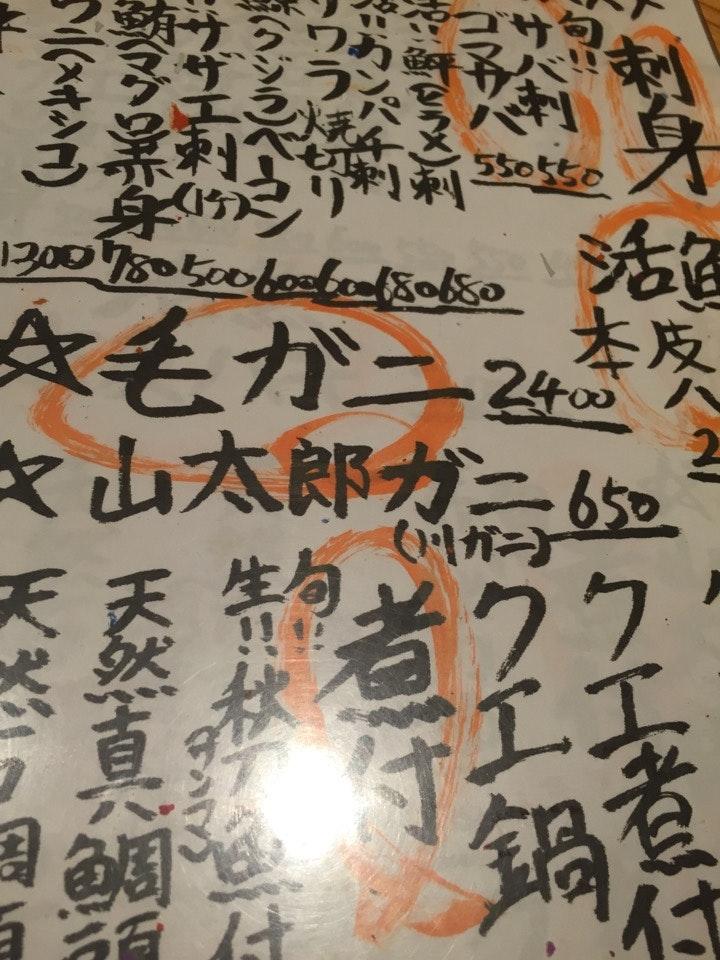 刺身
旬!!
サバ刺 550
ゴマサバ 550
活!!鮃(ヒラメ)刺 680
カンパチ刺 680
サワラ焼切り 600
(クジラ)ベーコン 600
サザエ刺(1ケ) 500
鮪(マグロ)赤身 780
ウニ(メキシコ) 1300
活魚
皮ハ
本
☆毛ガニ 2400
☆山太郎ガニ 650
(川ガニ)
クエ煮付
クエ鍋
煮付
旬!!
生!!秋刀魚煮付
(サンマ)
天然真鯛頭
天然
鯛頭